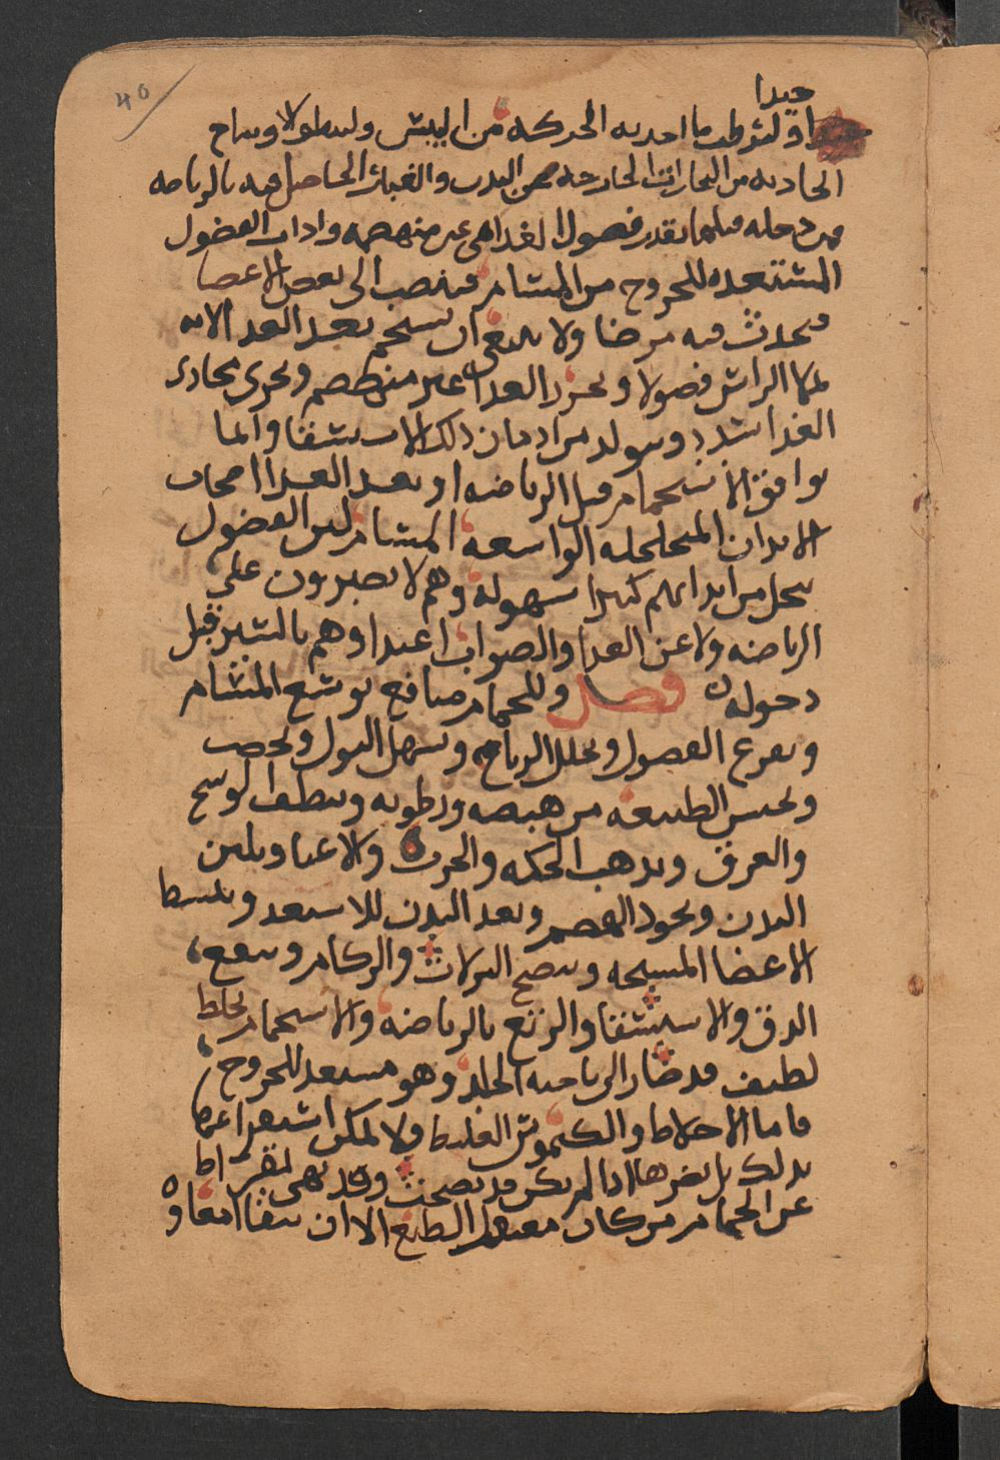 40
جيدا
اولترطب ما احدثه الحركه من اليبس ولتنظف الاوساخ
الحادثه من البخارات الخارجه من البدن والغبار الحاصل فيه بالرياضه
فمن دخله قبلهما بقدر فضول الغدا هي غير منهضمه واذاب الفضول
المستعده للخروج من المسام فتنصب الى بعض الاعضا
فيحدث فيه مرضا ولا ينبغي ان يستحم بعد الغدا لانه
يملا الراس فضولا ويحدر الغدا غير منهضم ويحرى مجارى
الغدا سدد ويتولد من ادمان ذلك الاستسقا وانما
يوافق الاستحمام قبل الرياضه او بعد الغدا اصحاب
الابدان المتخلخله الواسعه المسام لان الفضول
تتحلل من ابدانهم كثيرا بسهوله وهم لا يصبرون على
الرياضه ولا عن الغدا والصواب اغتداوهم باليسير قبل
دخوله فصل وللحمام منافع يوسع المسام
ويفرغ الفضول ويحلل الرياح ويسهل البول ويخصب
ويحبس الطبيعه من هيضه ورطوبه وينظف الوسخ
والعرق ويذهب الحكه والجرب والاعيا ويلين
البدن ويجود الهضم ويعد البدن للاستعد وينشط
الاعضا المتشنجه وينضج النزلات والزكام وينفع
الدق والاستسقا والربع بالرياضه والاستحمام يخلط
لطيف قد ضار الى ناحيه الجلد وهو مستعد للخروج
فاما الاخلاط والكيموس الغليظ ولا يمكن استفراغها
بذلك بل يضرها اذا لم يكن قد نضجت وقد نهى بقراط
عن الحمام من كان معتقل الطبع الا ان تنقا امعاوه